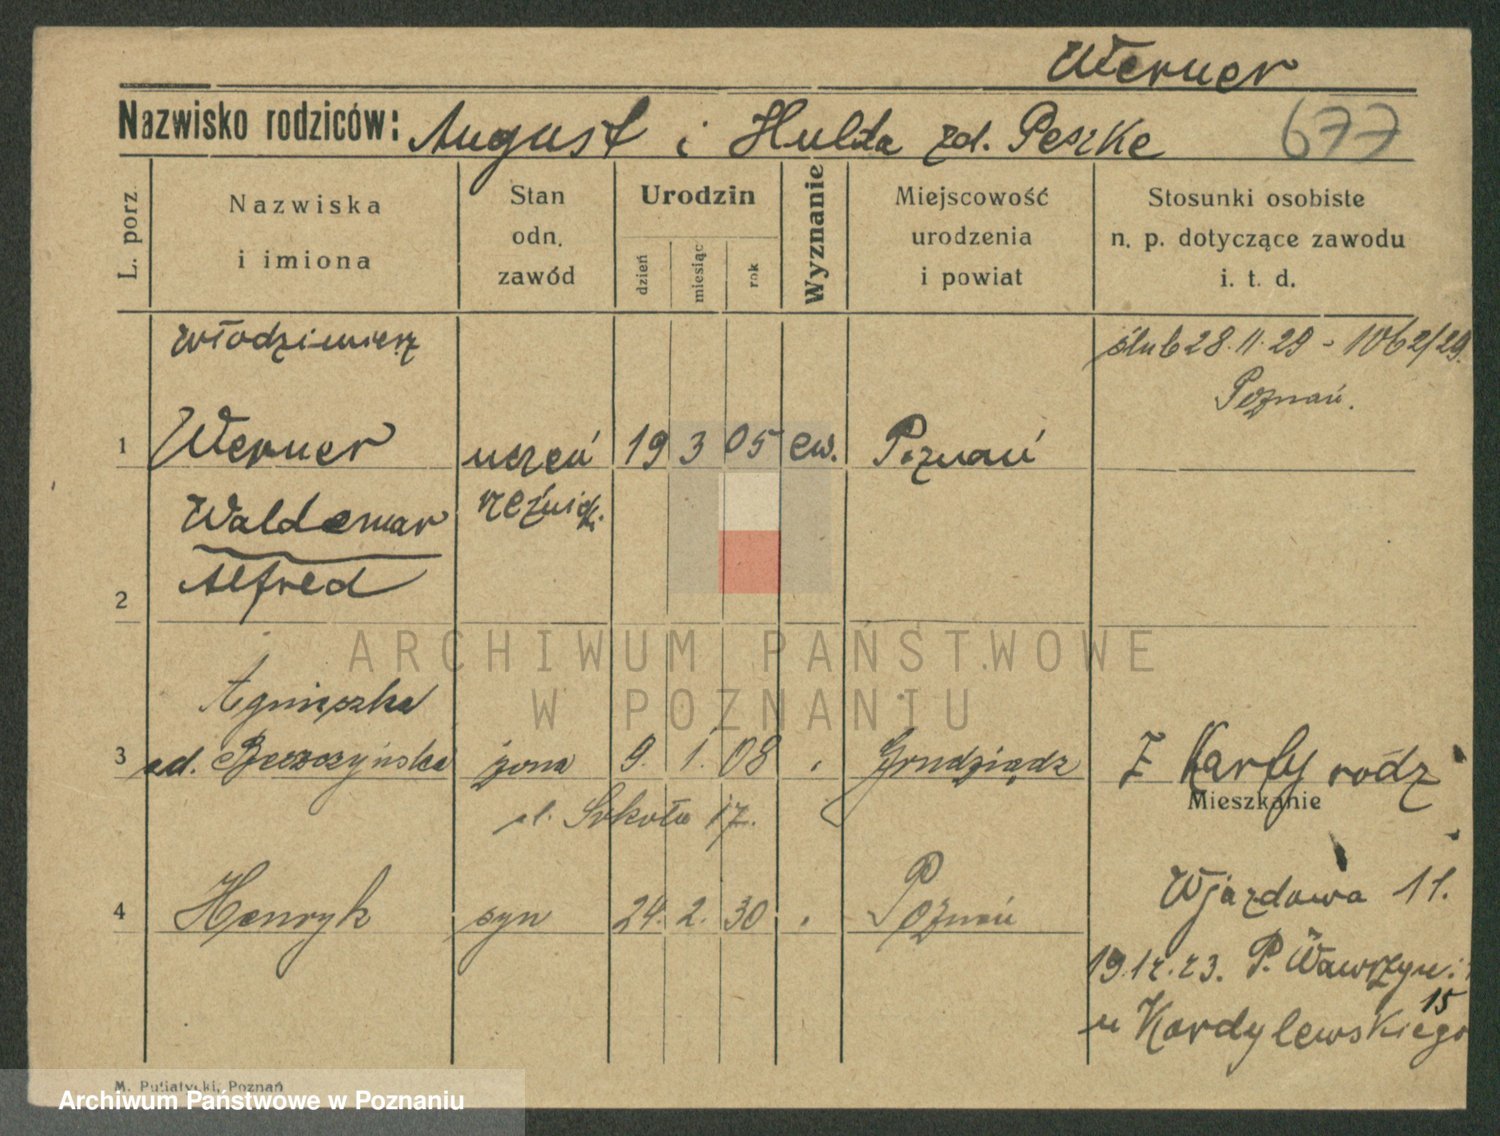 Werner
Nazwisko rodziców: August i Hulda zd. Peszke 677
L. porz.
Nazwiska i imiona
Stan odn. zawód
Urodzin
dzień miesiąc rok
Wyznanie
Miejscowość urodzenia i powiat
Stosunki osobiste n. p. dotyczące zawodu i. t. d.
Włodzimierz
ślub 28.11.29 - 1062/29.
Poznań.
1 Werner uczeń 19 3 05 ew. Poznań
Waldemar rzeźnicki.
2 Alfred
Agnieszka
3 żona 9. 1. 08 Grudziądz Z Karty rodz
Mieszkanie
ul. Sokoła 17.
Wjazdowa 11.
4 Henryk syn 24. 2. 30 Poznań
19.12.23. P. Wawrzyn. 15
u Kardylewskiego
M. Putiatycki, Poznań
ARCHIWUM PAŃSTWOWE
W POZNANIU
Archiwum Państwowe w Poznaniu